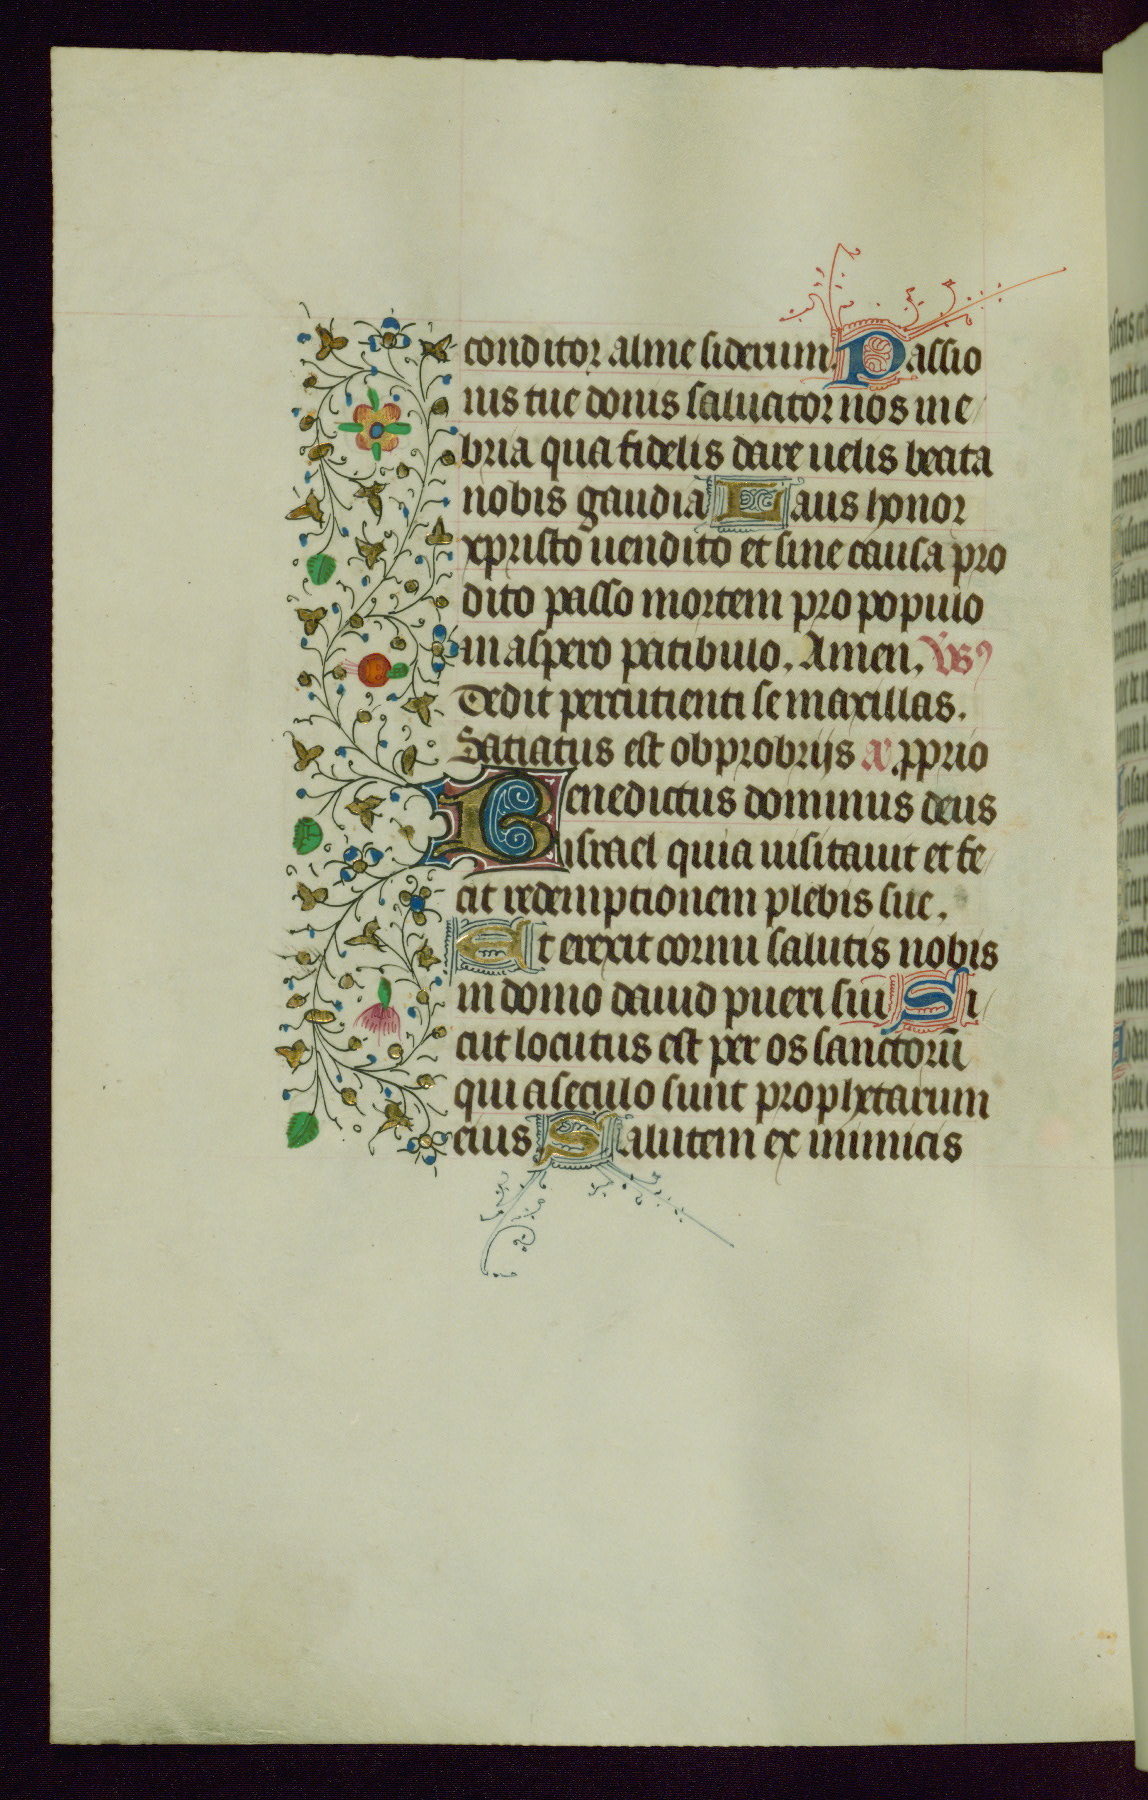 conditor alme siderum Passio
nis tue donis saluator nos ine
bria qua fidelis dare uelis beata
nobis gaudia Laus honor
xpristo uendito et sine causa pro
dito passo mortem pro populo
in aspero patibulo. Amen. Vs
Dedit percutienti se maxillas.
Satiatus est obprobrijs a pprio
Benedictus dominus deus
israel quia uisitauit et fe
cit redemptionem plebis sue.
Et erexit cornu salutis nobis
in domo dauid pueri sui Si
cut locutus est per os sanctorū
qui a seculo sunt prophetarum
eius Salutem ex inimicis